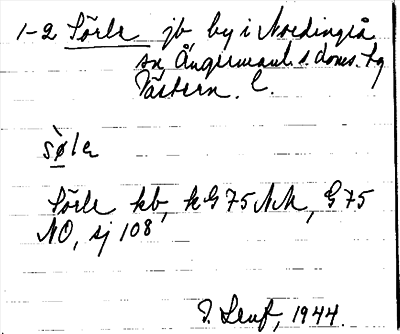 1-2 Sörle jb by i Nordingrå
sn Ångermanl. s doms. tg
Västern. l.
sø̀le
Sörle kb, kG75NM, G75
NO, sj 108
1944